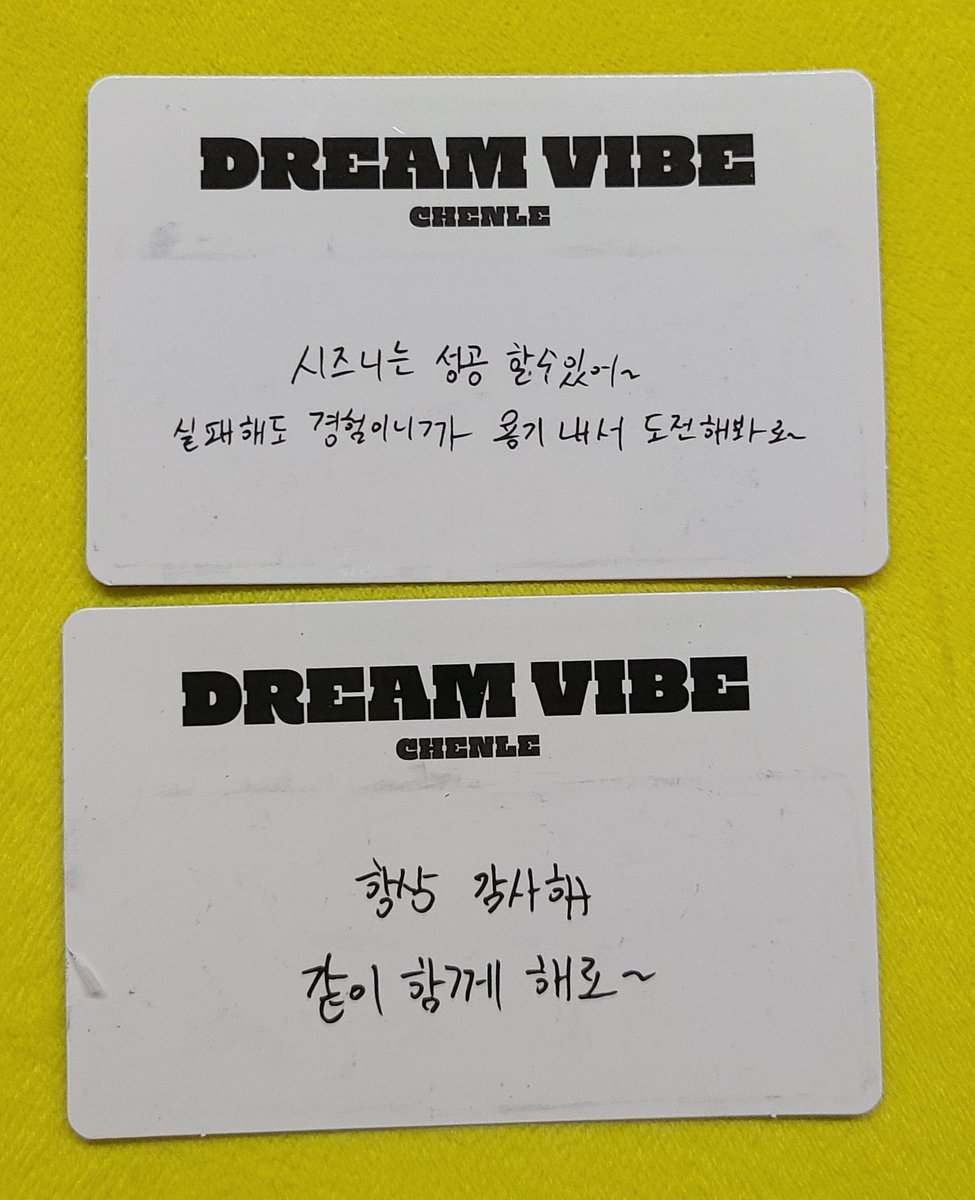 DREAM VIBE
CHENLE
시즈니는 성공 할수있어~
실패해도 경험이니까 용기 내서 도전해봐로~
DREAM VIBE
CHENLE
항상 감사해
같이 함께 해로~